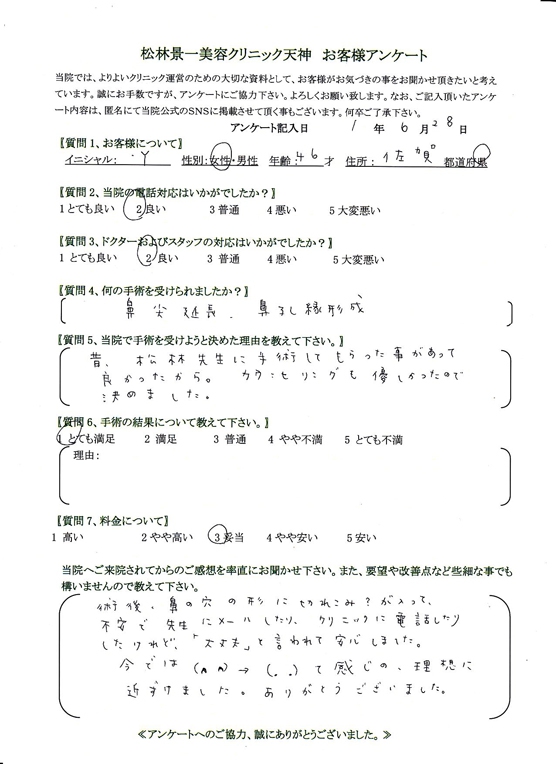 松林景一美容クリニック天神　お客様アンケート
当院では、よりよいクリニック運営のための大切な資料として、お客様がお気づきの事をお聞かせ頂きたいと考え
ています。誠にお手数ですが、アンケートにご協力下さい。よろしくお願い致します。なお、ご記入頂いたアンケ
ート内容は、匿名にて当院公式のSNSに掲載させて頂く事もございます。何卒ご了承下さい。
アンケート記入日　1 年 6 月 28 日
〖質問1、お客様について〗
イニシャル： Y 性別：女性・男性 年齢：46才 住所： 佐賀 都道府県
〖質問2、当院の電話対応はいかがでしたか？〗
1 とても良い 2 良い 3 普通 4 悪い 5 大変悪い
〖質問3、ドクターおよびスタッフの対応はいかがでしたか？〗
1 とても良い 2 良い 3 普通 4 悪い 5 大変悪い
〖質問4、何の手術を受けられましたか？〗
鼻尖延長、鼻孔縁形成
〖質問5、当院で手術を受けようと決めた理由を教えて下さい。〗
昔、松林先生に手術してもらった事があって
良かったから。カウンセリングも優しかったので
決めました。
〖質問6、手術の結果について教えて下さい。〗
1 とても満足 2 満足 3 普通 4 やや不満 5 とても不満
理由：
〖質問7、料金について〗
1 高い 2 やや高い 3 妥当 4 やや安い 5 安い
当院へご来院されてからのご感想を率直にお聞かせ下さい。また、要望や改善点など些細な事でも
構いませんので教えて下さい。
術後、鼻の穴の形に切れこみ？が入って、
不安で先生にメールしたり、クリニックに電話したり
したけれど、「大丈夫」と言われて安心しました。
今では (∩∩)→(..)て感じの、理想に
近ずけました。ありがとうございました。
≪アンケートへのご協力、誠にありがとうございました。≫